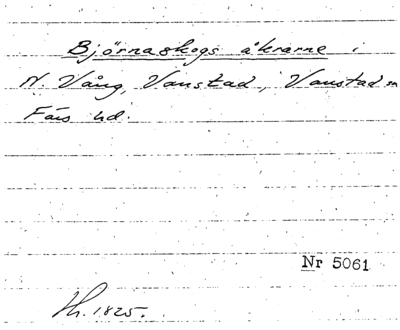 Björnaskogs åkrarne i
N. Vång, Vanstad, Vanstad sn
Färs hd.
Nr 5061
Hh. 1825.